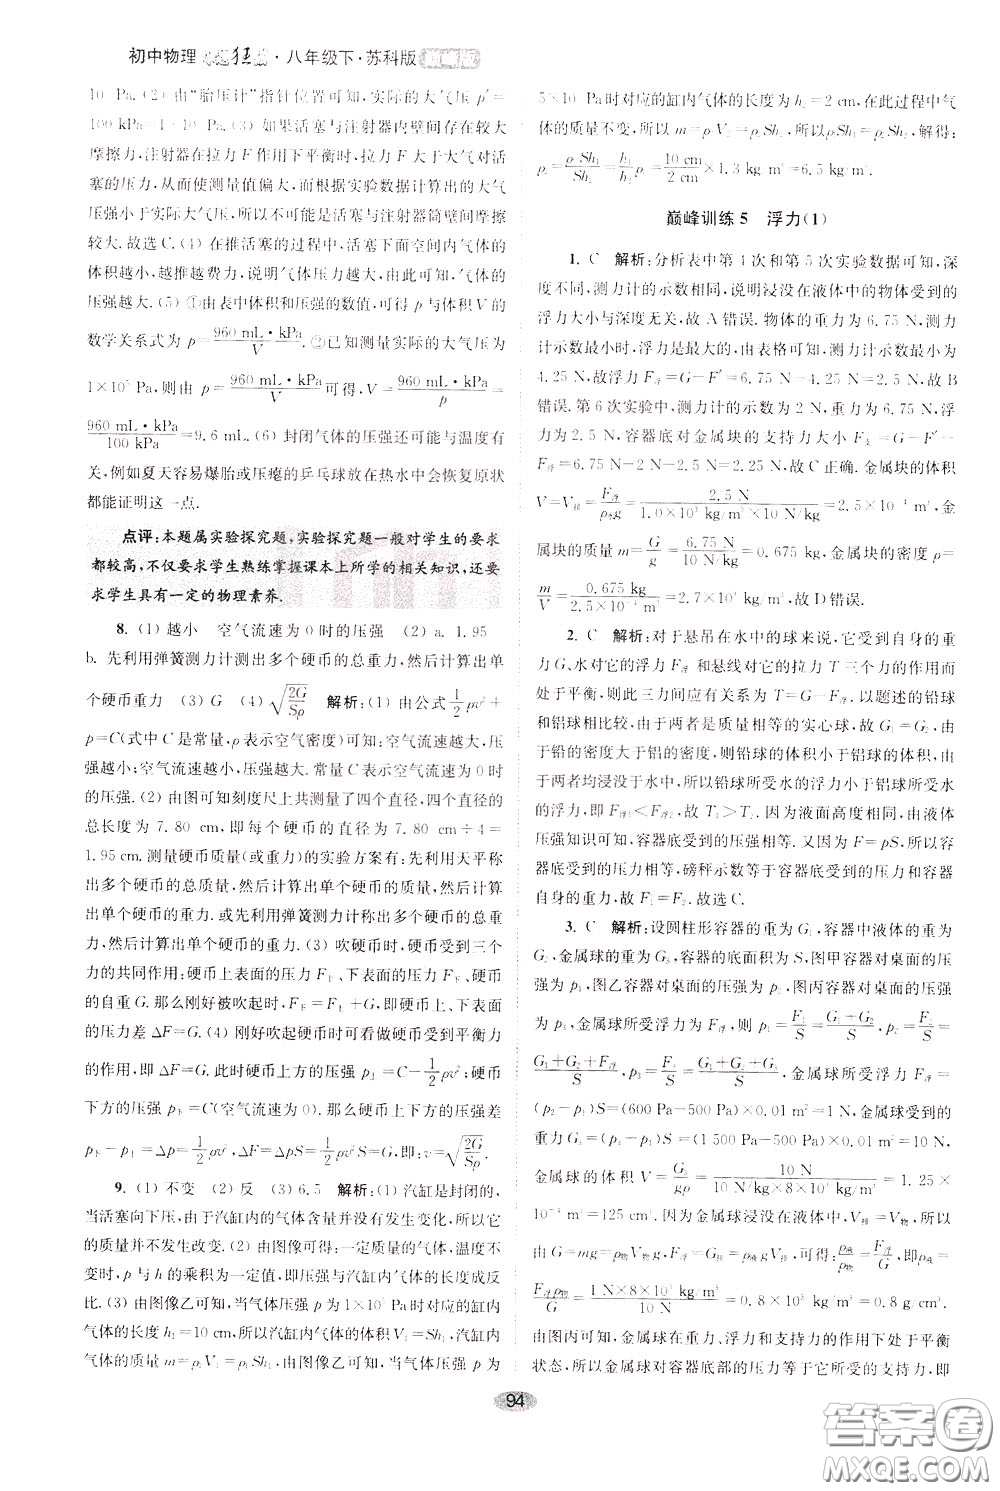 初中物理 狂 · 八年级下 · 苏科版 巅峰版
10 Pa. (2) 由“胎压计”指针位置可知,实际的大气压 p′=
100 kPa=1×10⁵ Pa. (3) 如果活塞与注射器内壁间存在较大
摩擦力,注射器在拉力 F 作用下平衡时,拉力 F 大于大气对活
塞的压力,从而使测量值偏大,而根据实验数据计算出的大气
压强小于实际大气压,所以不可能是活塞与注射器筒壁间摩擦
较大. 故选 C. (4) 在推活塞的过程中,活塞下面空间内气体的
体积越小,越推越费力,说明气体压力越大,由此可知,气体的
压强越大. (5) ①由表中体积和压强的数值,可得 p 与体积 V 的
数学关系式为 p=960 mL·kPa/V. ②已知测量实际的大气压为
1×10⁵ Pa,则由 p=960 mL·kPa/V 可得,V=960 mL·kPa/p=
960 mL·kPa/100 kPa=9.6 mL. (6) 封闭气体的压强还可能与温度有
关,例如夏天容易爆胎或压瘪的乒乓球放在热水中会恢复原状
都能证明这一点.
点评:本题属实验探究题,实验探究题一般对学生的要求
都较高,不仅要求学生熟练掌握课本上所学的相关知识,还要
求学生具有一定的物理素养.
8. (1) 越小 空气流速为 0 时的压强 (2) a. 1.95
b. 先利用弹簧测力计测出多个硬币的总重力,然后计算出单
个硬币重力 (3) G (4) √(2G/Sρ) 解析:(1) 由公式 1/2 ρv²+
p=C(式中 C 是常量,ρ 表示空气密度)可知,流速越大,压
强越小;空气流速越小,压强越大. 常量 C 表示空气流速为 0 时
的压强. (2) 由图可知刻度尺上共测量了四个直径,四个直径的
总长度为 7.80 cm,即每个硬币的直径为 7.80 cm÷4=
1.95 cm. 测量硬币质量(或重力)的实验方案有:先利用天平称
出多个硬币的总质量,然后计算出单个硬币的质量,然后计算
出单个硬币的重力. 或先利用弹簧测力计称出多个硬币的总重
力,然后计算出单个硬币的重力. (3) 吹硬币时,硬币受到三个
力的作用:硬币上表面的压力 F上、硬币下表面的压力 F下、硬币
的自重 G. 那么刚好被吹起时,F下=F上+G,即硬币上、下表面
的压力差 ΔF=G. (4) 刚好吹起硬币时可看做硬币受到平衡力
的作用,即 ΔF=G. 此时硬币上方的压强 p上=C−1/2 ρv²;硬币
下方的压强 p下=C(空气流速为 0). 那么硬币上下方的压强差
p下−p上=Δp=1/2 ρv²,ΔF=ΔpS=1/2 ρv²S=G. 即:v=√(2G/Sρ).
9. (1) 不变 (2) 反 (3) 6.5 解析:(1) 汽缸是封闭的,
当活塞向下压,由于汽缸内的气体含量并没有发生变化,所以它
的质量并不发生改变. (2) 由图像可得:一定质量的气体,温度不
变时,p 与 h 的乘积为一定值,即压强与汽缸内气体的长度成反
比. (3) 由图像乙可知,当气体压强 p 为 1×10⁵ Pa 时对应的缸内
气体的长度 h₁=10 cm,所以汽缸内气体的体积 V₁=Sh₁,汽缸内
气体的质量 m=ρ₁V₁=ρ₁Sh₁;由图像乙可知,当气体压强 p 为
5×10⁵ Pa 时对应的缸内气体的长度为 h₂=2 cm,在此过程中气
体的质量不变,所以 m=ρ₂V₂=ρ₂Sh₂,所以 ρ₁Sh₁=ρ₂Sh₂,解得:
ρ₂=ρ₁Sh₁/Sh₂=h₁/h₂ρ₁=10 cm/2 cm×1.3 kg/m³=6.5 kg/m³.
巅峰训练 5 浮力(1)
1. C 解析:分析表中第 4 次和第 5 次实验数据可知,深
度不同,测力计的示数相同,说明浸没在液体中的物体受到的
浮力大小与深度无关,故 A 错误. 物体的重力为 6.75 N,测力
计示数最小时,浮力是最大的,由表格可知,测力计示数最小为
4.25 N,故浮力 F浮=G−F′=6.75 N−4.25 N=2.5 N,故 B
错误. 第 6 次实验中,测力计的示数为 2 N,重力为 6.75 N,浮
力为 2.5 N,容器底对金属块的支持力大小 F支=G−F′−
F浮=6.75 N−2 N−2.5 N=2.25 N,故 C 正确. 金属块的体积
V=V排=F浮/ρ水g=2.5 N/(1.0×10³ kg/m³×10 N/kg)=2.5×10⁻⁴ m³,金
属块的质量 m=G/g=6.75 N/10 N/kg=0.675 kg,金属块的密度 ρ=
m/V=0.675 kg/2.5×10⁻⁴ m³=2.7×10³ kg/m³,故 D 错误.
2. C 解析:对于悬吊在水中的球来说,它受到自身的重
力 G、水对它的浮力 F浮 和悬线对它的拉力 T 三个力的作用而
处于平衡,则此三力间应有关系为 T=G−F浮. 以题述的铅球
和铝球相比较,由于两者是质量相等的实心球,故 G₁=G₂,由
于铅的密度大于铝的密度,则铅球的体积小于铝球的体积,
由于两者均浸没于水中,所以铅球所受水的浮力小于铝球所受水
的浮力,即 F浮1<F浮2,故 T₁>T₂. 因为液面高度相同,由液体
压强知识可知,容器底受到的压强相等. 又由 F=pS,所以容
器底受到的压力相等,磅秤示数等于容器底受到的压力和容器
自身的重力,故 F₁=F₂. 故选 C.
3. C 解析:设圆柱形容器的重为 G₁,容器中液体的重为
G₂,金属球的重为 G₃,容器的底面积为 S,图甲容器对桌面的压
强为 p₁,图乙容器对桌面的压强为 p₂,图丙容器对桌面的压强
为 p₃,金属球所受浮力为 F浮,则 p₁=F₁/S=(G₁+G₂)/S,p₂=F₂/S=
(G₁+G₂+F浮)/S,p₃=F₃/S=(G₁+G₂+G₃)/S,金属球所受浮力 F浮=
(p₂−p₁)S=(600 Pa−500 Pa)×0.01 m²=1 N,金属球受到的
重力 G₃=(p₃−p₁)S=(1 500 Pa−500 Pa)×0.01 m²=10 N,
金属球的体积 V=G₃/gρ=10 N/(10 N/kg×8×10³ kg/m³)=1.25×
10⁻⁴ m³=125 cm³. 因为金属球浸没在液体中,V排=V物,所以
由 G=mg=ρ物V物g,F浮=ρ液gV排,可得:ρ液/ρ物=F浮/G,即 ρ液=
F浮ρ物/G=1 N×8×10³ kg/m³/10 N=0.8×10³ kg/m³=0.8 g/cm³.
由图丙可知,金属球在重力、浮力和支持力的作用下处于平衡
状态,所以金属球对容器底部的压力等于它所受的支持力,即
94
答案圈
MXQE.COM